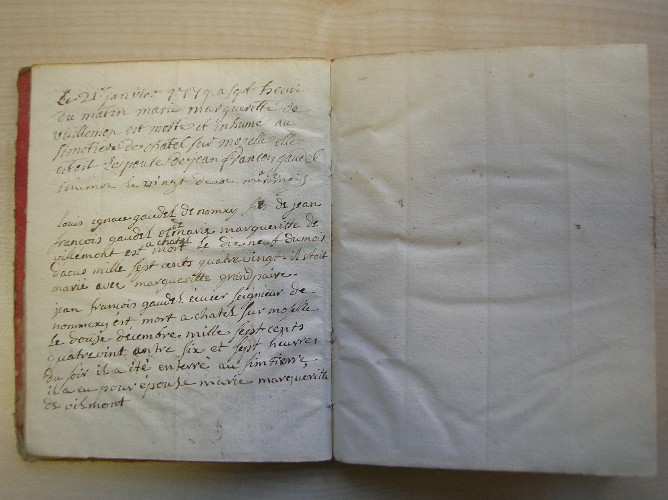 Le 21e janvier 1779 a sept heure
du matin marie marqueritte de
vuillemon est morte et inhumé au
simetiere de chatel sur moselle elle
estoit lespouse de jean françois gaudel
inumer le vingt deux même mois
louis ignace gaudel de nomxy fils de jean
françois gaudel et de marie marqueritte de
villemont est mort a chatel le dix neuf du mois
daous mille sept cents quatre vingt. il etait
marié avec marqueritte grandpaire.
jean françois gaudel écuier seigneur de
nommexy est mort a chatel sur moselle
le douze decembre mille sept cents
quatrevint antre six et sept heurres
du soir il a été enterre au simtierre,
il a eu pour epouse marie marqueritte
de vilmont